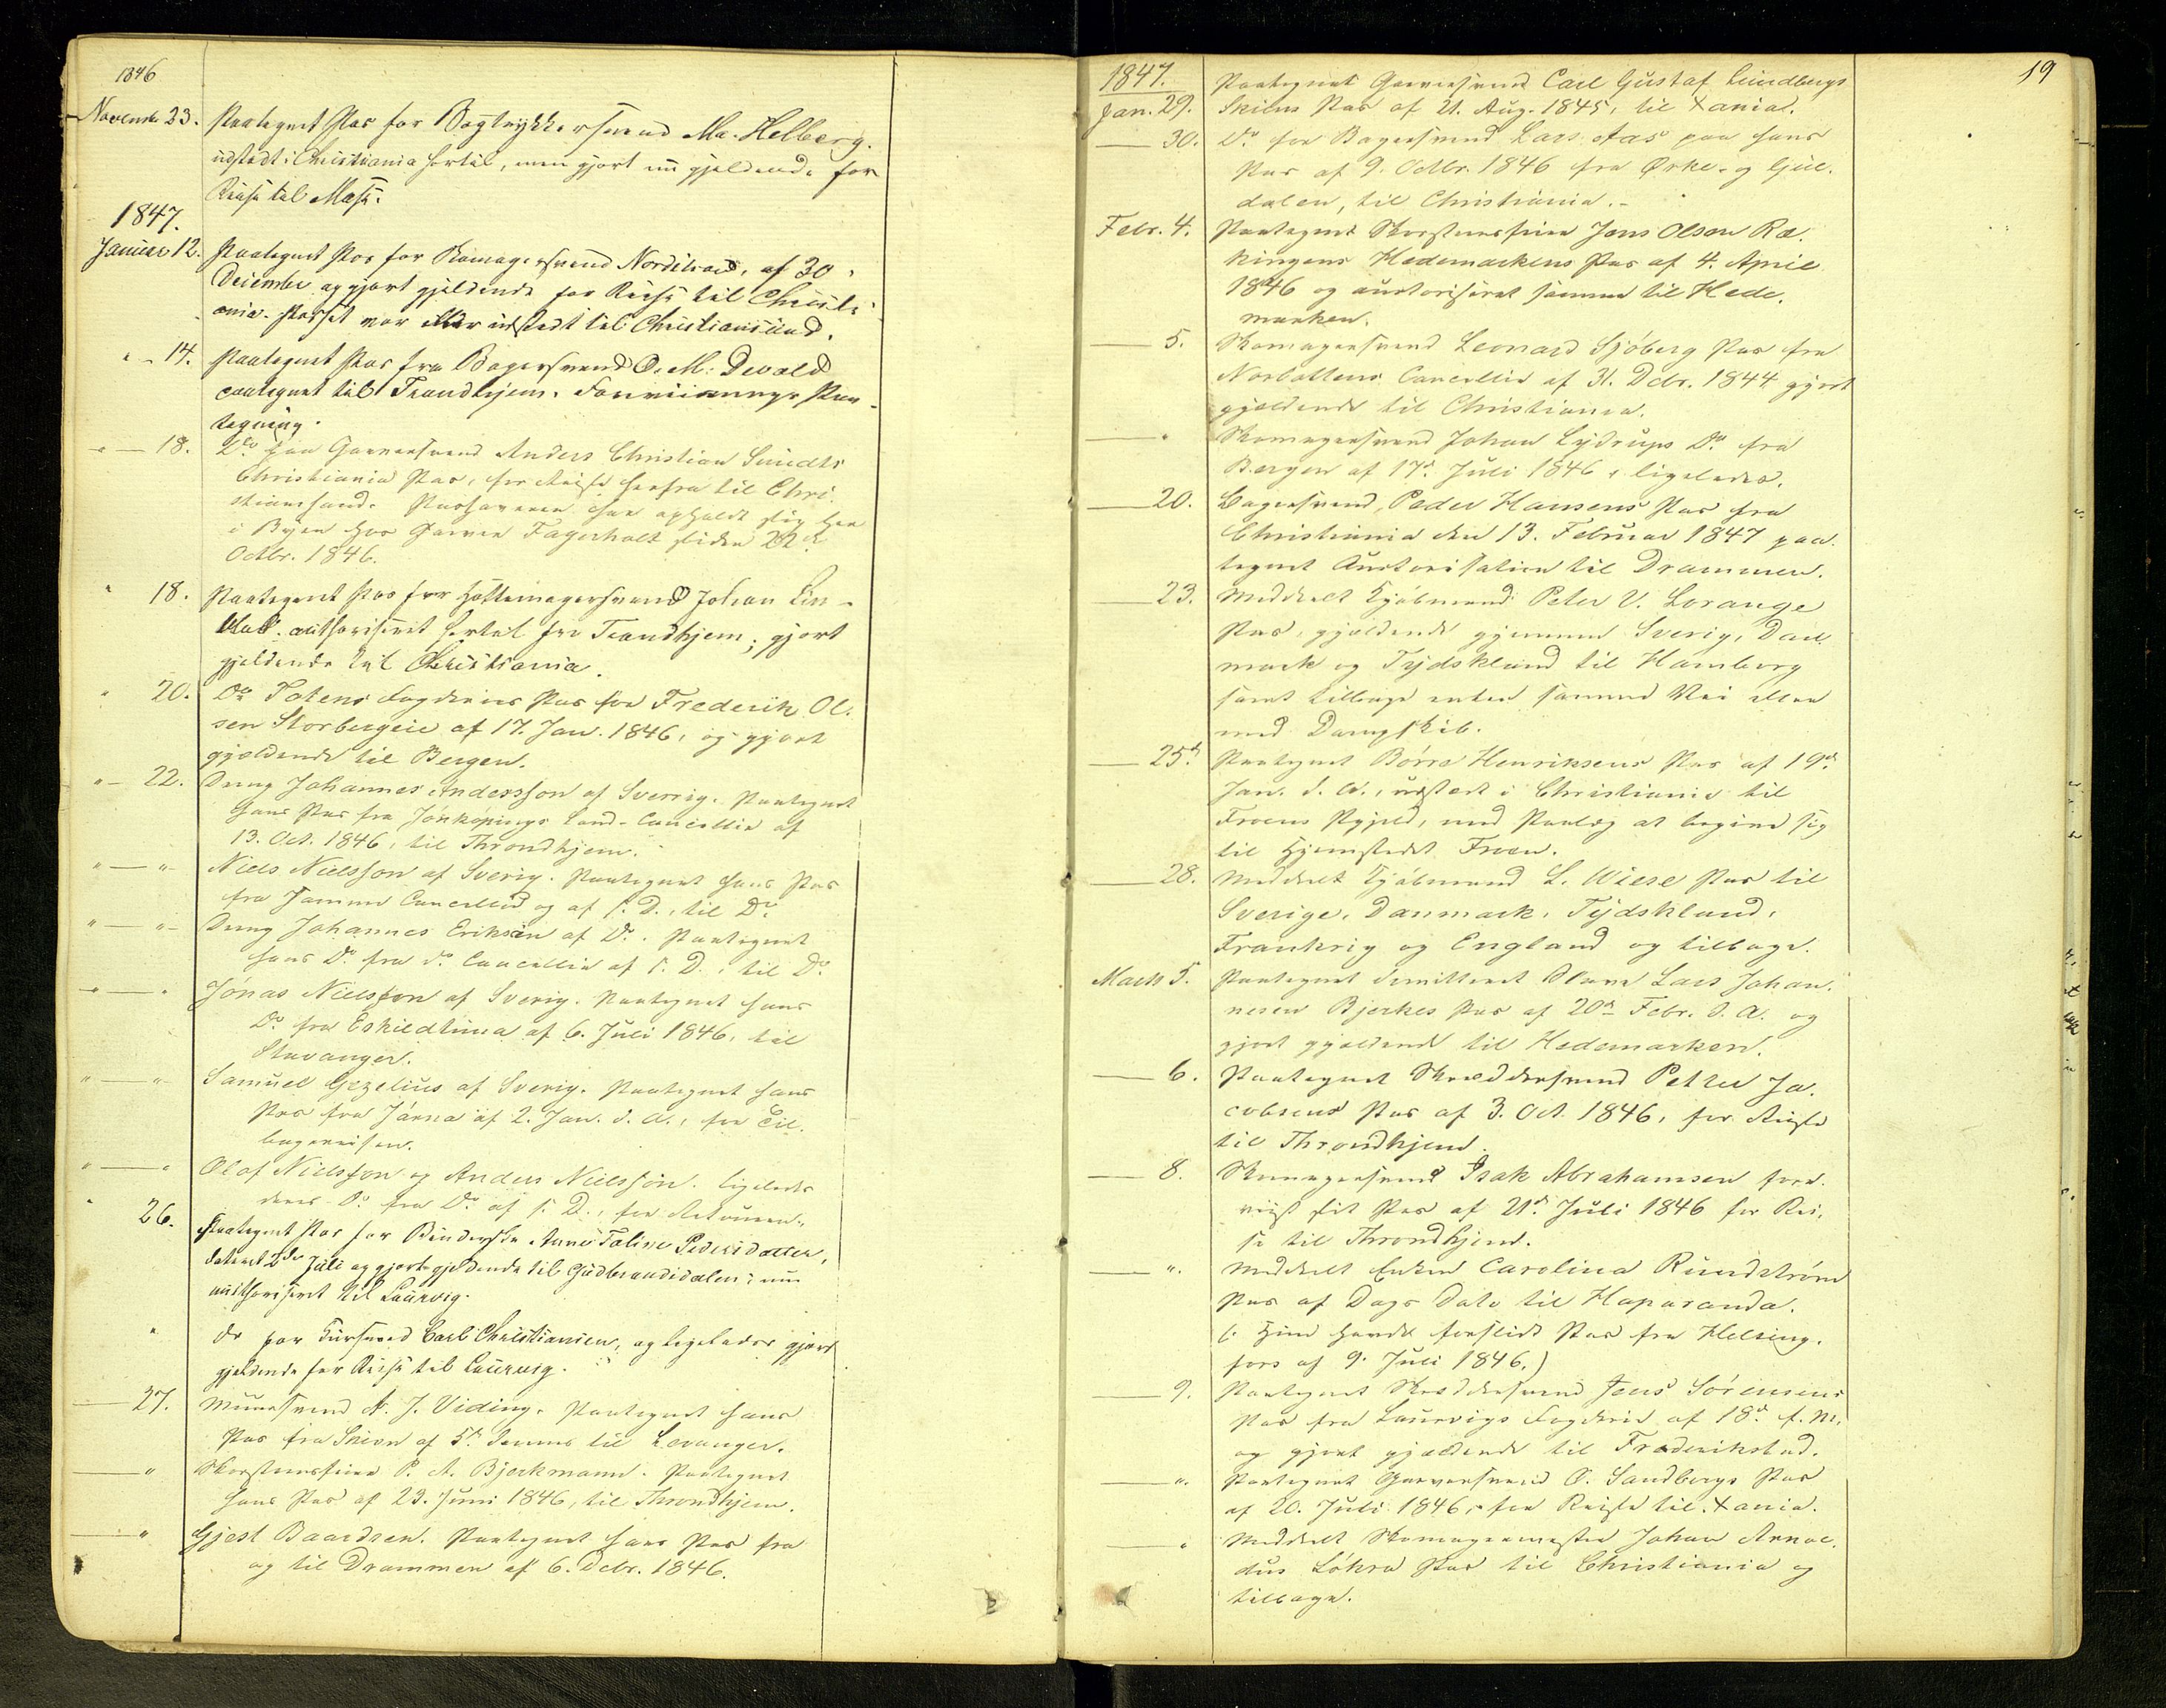 1846
November 23. Paategnet Pas for Bogtrykkersvend Ma. Helberg.
udstedt i Christiania hertil, men gjort nu gjeldende for
Reise til Moss.
1847.
Januar 12. Paategnet Pas for Skomagersvend Nordstrand, af 30
December og gjort gjeldende for Reise til Christi-
ania. Passet var udstedt til Christiansund.
" - 14. Paategnet Pas fra Bagersvend O. M. Devold
paategnet til Trondhjem. Fornviiings Paa-
tegning.
" — 18. Do paa Garversvend Anders Christian Smidts
Christiania Pas, for Reise herfra til Chri-
stiansund. Pashaveren har opholdt sig her
i Byen hos Garver Fagerholt siden 22de
Octbr. 1846.
" 18. Paategnet Pas for Hattemagersvend Johan
authoriseret hertil fra Trondhjem; gjort
gjeldende til Christiania.
" 20. Do Totens Fogderies Pas for Frederik Ol-
sen Storbergeie af 17. Jan. 1846, og gjort
gjældende til Bergen.
" — 22. Dreng Johannes Andersson af Sverrig. Paategnet
hans Pas fra Jönköpings Land-Cancellie af
13. Oct. 1846, til Throndhjem.
" — " Niels Nielsson af Sverig. Paategnet hans Pas
fra samme Cancellie og af s. D., til Do
" — " Dreng Johannes Eriksen af Do. Paategnet
hans Do fra do. Cancellie af s. D. til Do.
" — " Jónas Nielsson af Sverig. Paategnet hans
Do fra Eskildtuna af 6. Juli 1846, til
Stavanger.
" — " Samuel Gezelius af Sverig. Paategnet hans
Pas fra Járna af 2. Jan. d. A., for Til-
bagereisen.
" — " Olof Nielsson og Anders Nielsson. Ligeledes
deres Do fra Do af s. D., for Retouren.
" 26. Paategnet Pas for Anne Taline Pedersdatter,
dateret 2de Juli og gjort gjeldende til Gudbrandsdalen; nu
authoriseret til Laurvig.
" do for Carl Christiansen, og ligeledes gjort
gjeldende for Reise til Laurvig.
— 27. Muursvend N. J. Viding. Paategnet hans
Pas fra Skien af 5te dennes til Levanger.
— " Skorsteensfeier P. A. Bjerkmann. Paategnet
hans Pas af 23. Juni 1846, til Throndhjem.
— " Gjest Baardsen. Paategnet hans Pas fra
og til Drammen af 6. Dcbr. 1846.
19
1847. Paategnet Garversvend Carl Gustaf Lundbergs
Jan. 29. Skiens Pas af 21. Aug. 1845, til Xania.
— 30. Do for Bagersvend Lars Aas paa hans
Pas af 9. Octbr. 1846 fra Ørke- og Gul-
dalen, til Christiania.-
Febr. 4. Paategnet Skorsteensfeier Jens Olsen Ræ-
kingens Hedemarkens Pas af 4. April
1846 og auctoriseret samme til Hede-
marken.
— 5. Skomagersvend Leonard Sjöberg Pas fra
Norbottens Cancellie af 31. Dcbr. 1844 gjort
gjældende til Christiania.
— " Skomagersvend Johan Lydrups Do fra
Bergen af 17de Juli 1846, ligeledes.
— 20. Bagersvend Peder Hansens Pas fra
Christiania den 13. Februar 1847 paa-
tegnet Auctorisation til Drammen.
— 23. Meddeelt Kjöbmand Peter V. Lorange
Pas, gjældende gjennem Sverig, Dan-
mark og Tydskland til Hamborg
samt tilbage enten samme Vei eller
med Dampskib.
— 25de Paategnet Börre Henriksens Pas af 19de
Jan. d. A., udstedt i Christiania til
Froens Pgjeld, med Paalæg at begive sig
til Hjemstedet Froen.
— 28. Meddeelt Kjöbmand L. Wiese Pas til
Sverige, Danmark, Tydskland,
Frankrig og England og tilbage.
Marts 5. Paategnet demitteret Slave Lars Johan-
nesen Bjerkes Pas af 20de Febr. d. A. og
gjort gjældende til Hedemarken.
— 6. Paategnet Skræddersvend Petter Ja-
cobsens Pas af 3. Oct. 1846, for Reise
til Throndhjem.
— 8. Skomagersvend Isak Abrahamsen fore-
viist sit Pas af 21de Juli 1846 for Rei-
se til Throndhjem.
— ". Meddeelt Enken Carolina Rundström
Pas af Dags Dato til Haparanda.
(: Hun havde forslidt Pas fra Helsing-
fors af 9. Juli 1846.)
— 9. Paategnet Skræddersvend Jens Sörensens
Pas fra Laurvigs Fogderie af 18de f. M.
og gjort gjældende til Frederikstad.
— ". Paategnet Garversvend O. Sandbergs Pas
af 20. Juli 1846, for Reise til Xania.
— " Meddeelt Skomagermester Johan Arnol-
dus Lökra Pas til Christiania og
tilbage.